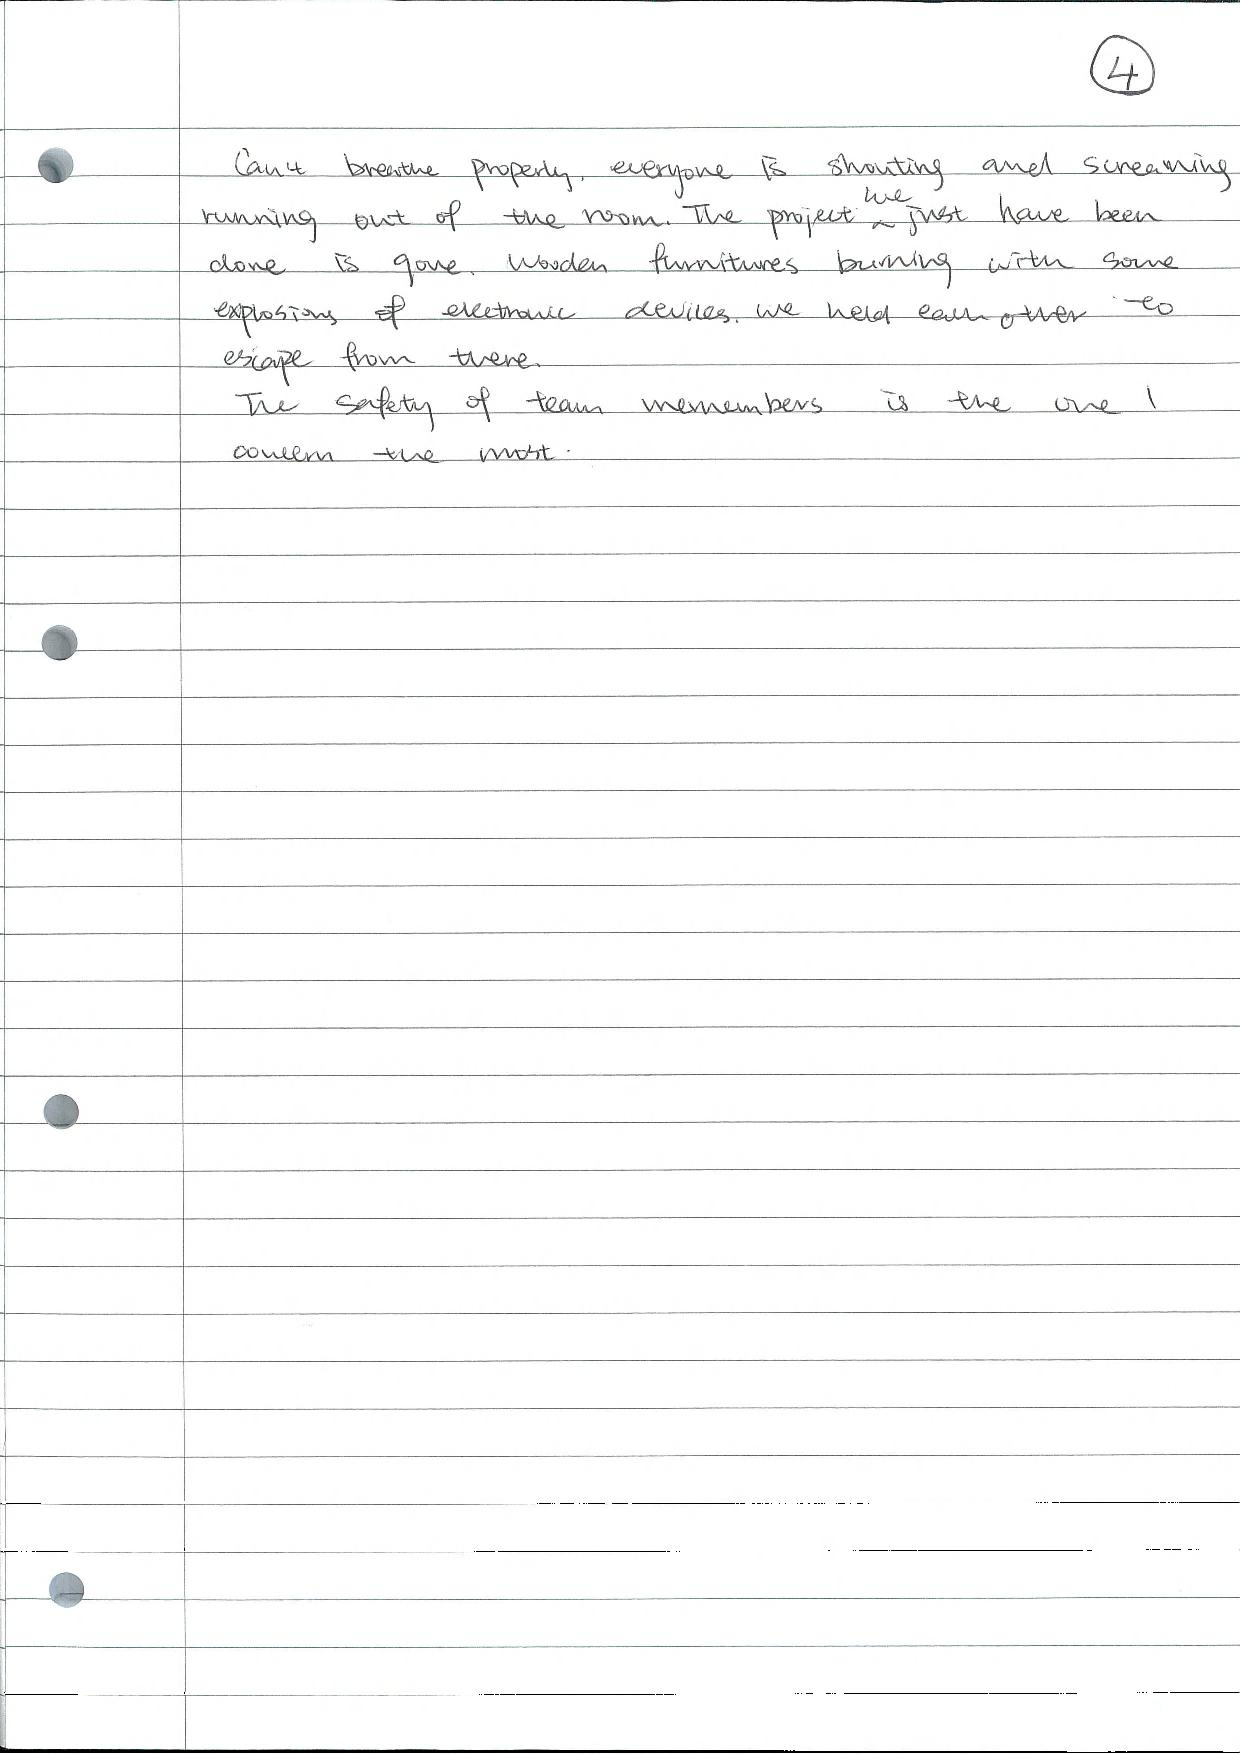 4
Can't breathe properly. everyone is shouting and screaming
running out of the room. The project we just have been
done is gone. Wooden furnitures burning with some
explosions of electronic devices. we held each other to
escape from there.
The safety of team memembers is the one I
concern the most.